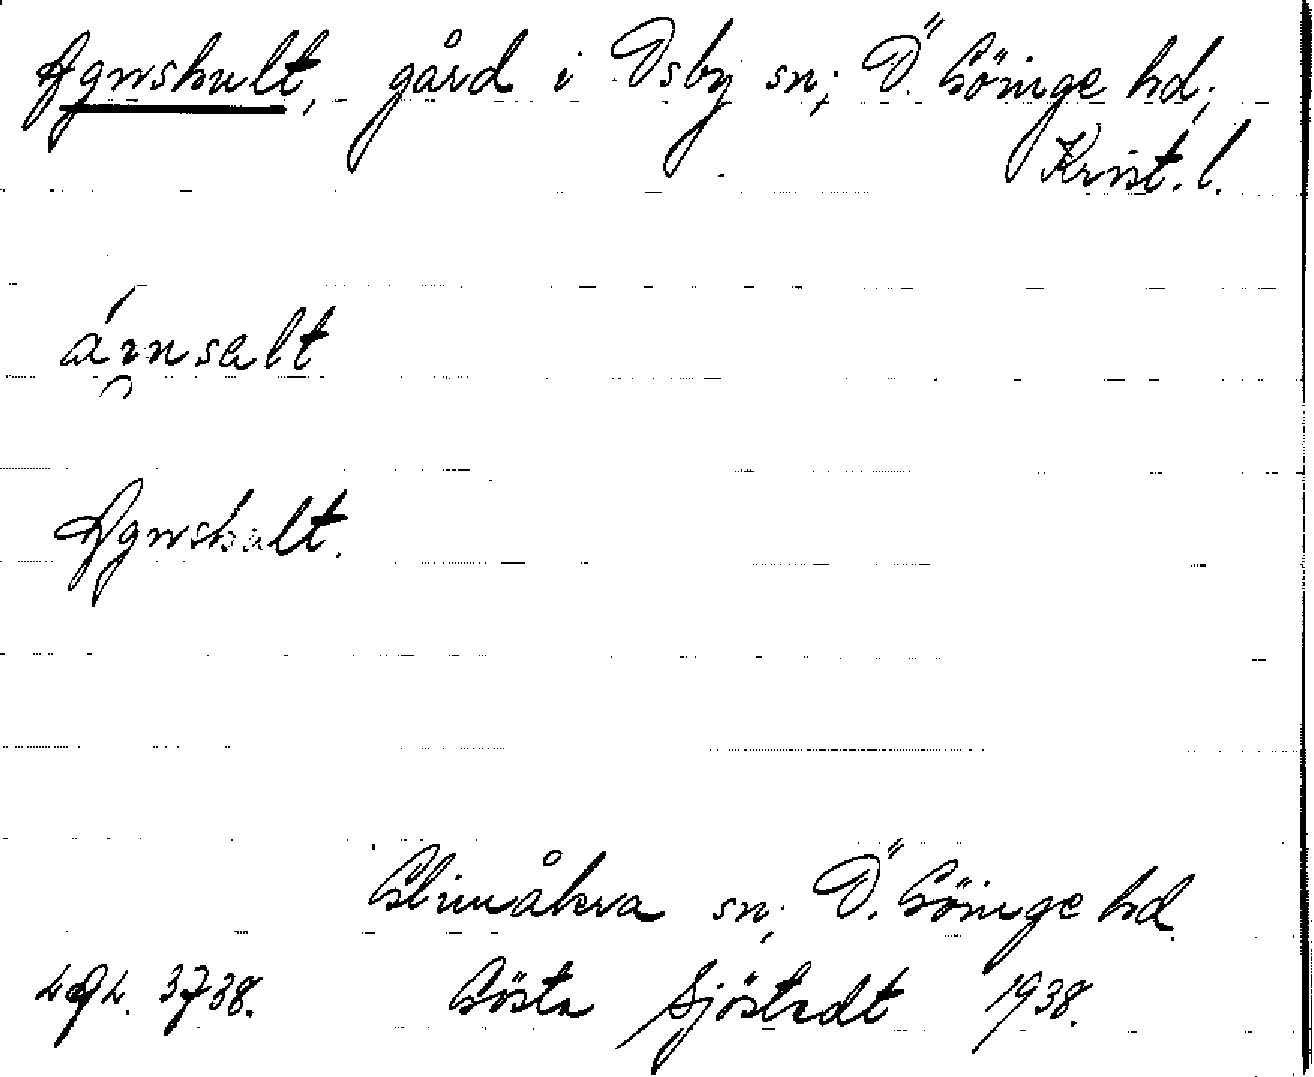 Agnshult, gård i Osby sn; Ö. Göinge hd;
Krist. l.
árnsalt
Agnshult.
Glimåkra sn; Ö. Göinge hd.
3738. Gösta Sjöstedt 1938.